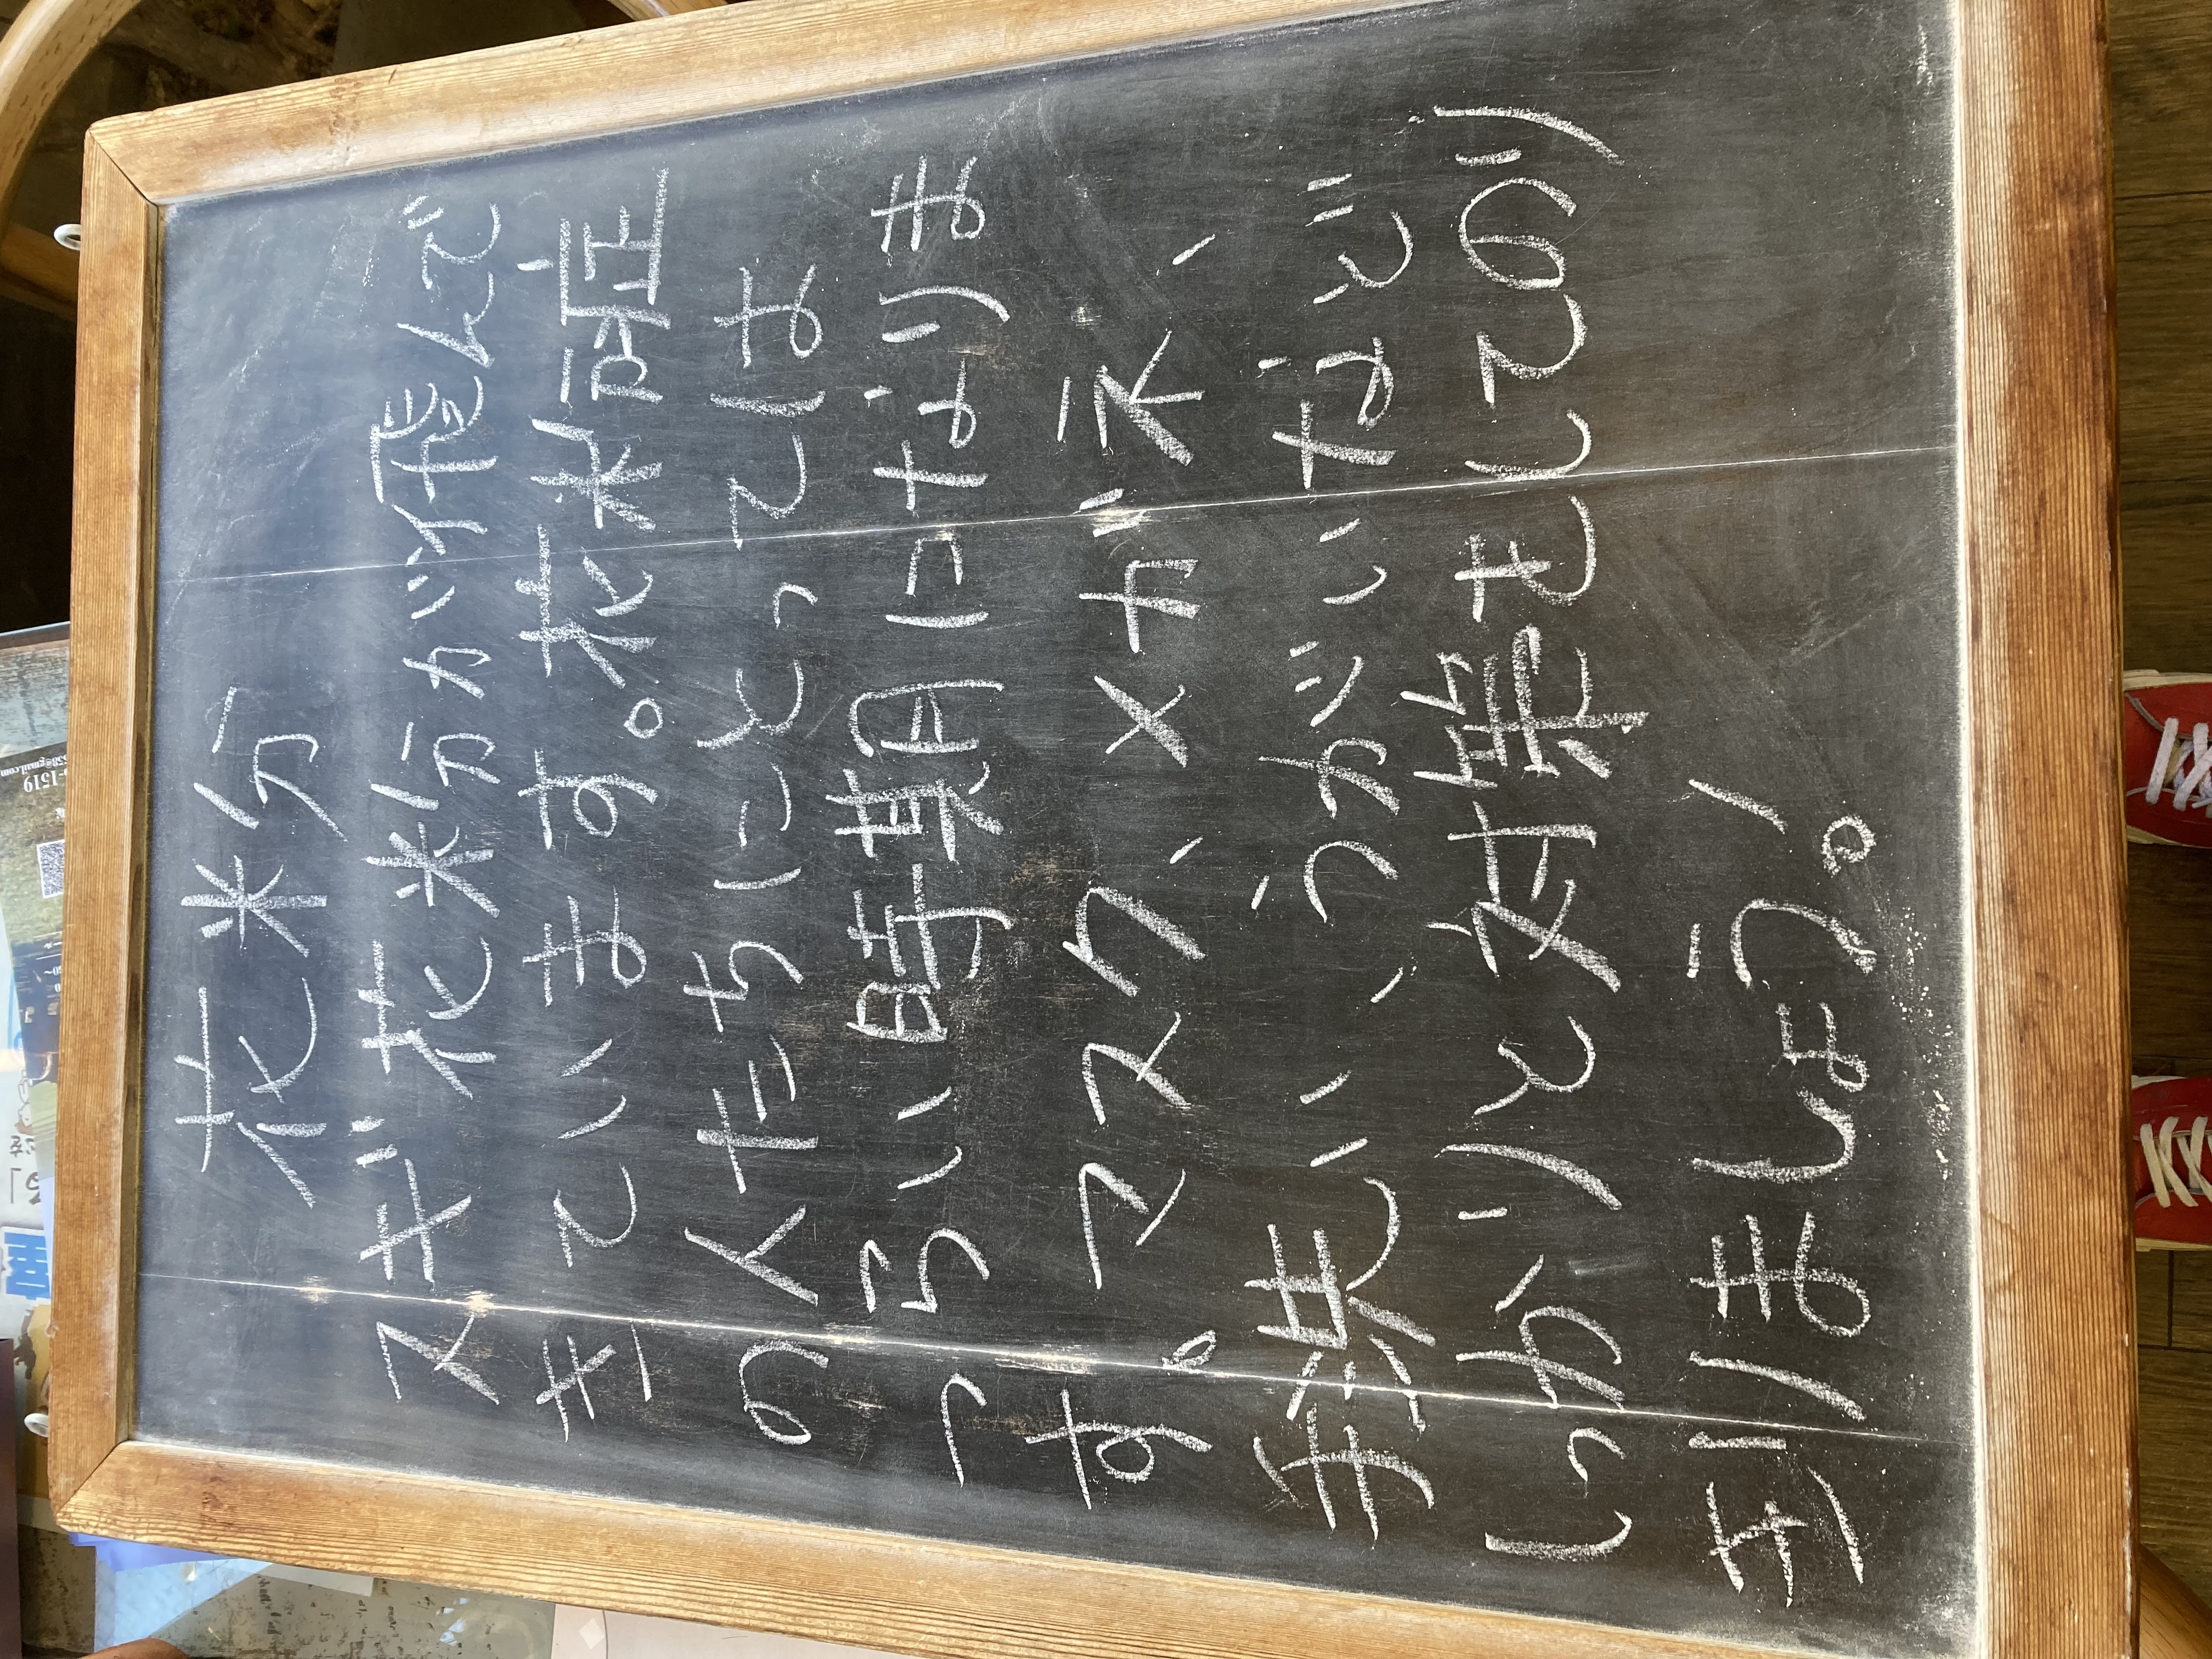 花粉
スギ花粉が飛んで
きています。花粉症
の人たちにとっては
つらい時期になりま
す。マスク、メガネ、
手洗い、うがいなど
しっかりと対策をしてのり
きりましょう。